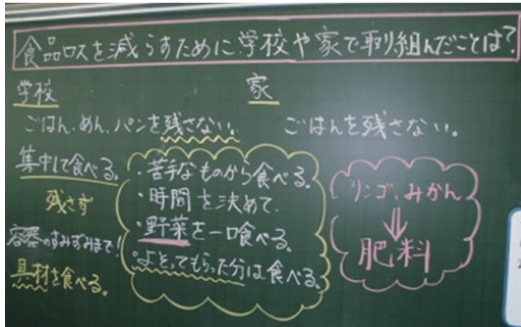 食品ロスを減らすために学校や家で取り組んだことは?
学校
家
ごはん、めん、パンを残さない。
ごはんを残さない。
集中して食べる。
残さず
容器のすみずみまで!
具材を食べる。
・苦手なものから食べる。
・時間を決めて、
・野菜を一口食べる。
よとってもらった分は食べる。
リンゴ、みかん
⇓
肥料